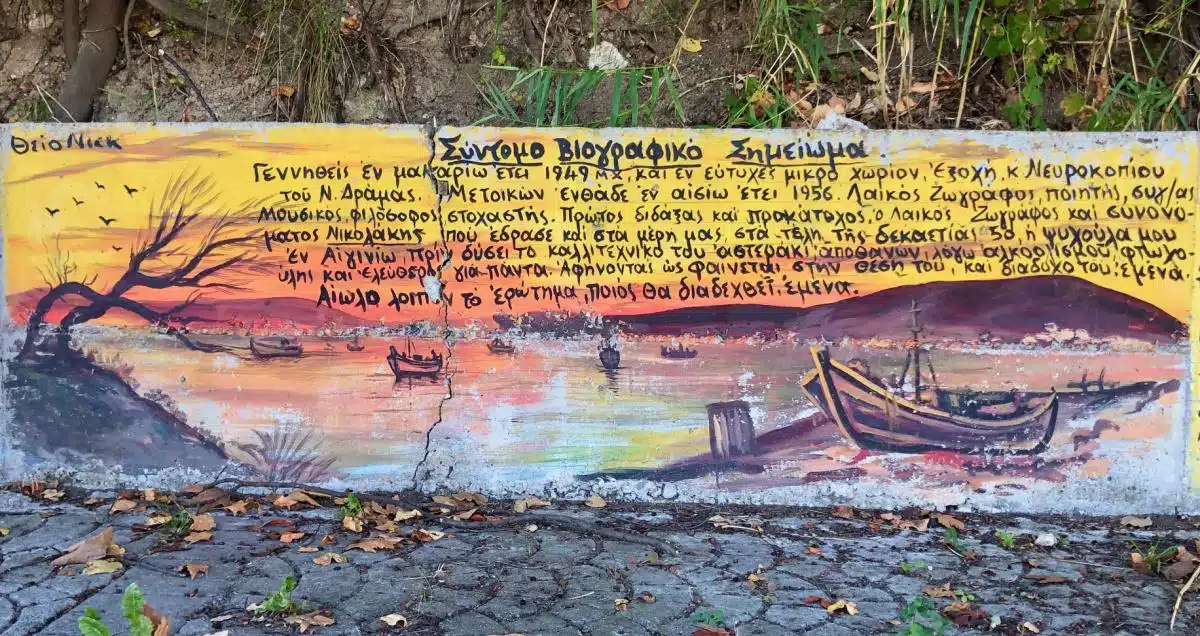 Θείο Nick
Σύντομο Βιογραφικό Σημείωμα
Γεννηθείς ἐν μακαρίω ἔτει 1949 μχ, καί ἐν εὐτυχές μικρό χωρίον, Ἐξοχή, κ. Νευροκοπίου
τοῦ Ν. Δράμας. Μετοικών ἐνθάδε ἐν αἰσίω ἔτει 1956. Λαϊκός Ζωγράφος, ποιητής, συχ/αι
Μουσικός, φιλόσοφος, στοχαστής. Πρῶτος διδάξας καί προκάτοχος, ὁ Λαϊκός Ζωγράφος καί συνονό-
ματος Νικολάκης πού ἔδρασε καί στά μέρη μας, στά τέλη τῆς δεκαετίας 50 ἡ ψυχούλα μου
ἐν Αἰγινίω, πρίν δύσει τό καλλιτεχνικό του ἀστεράκι, ἀποθανών, λόγω ἀλκοολισμοῦ, φτωχο-
ύλης καί ἐλεύθερος γιά πάντα. Ἀφήνοντας ὡς φαίνεται, στήν θέση του, καί διάδοχό του, ἐμένα.
Αἰωλο λοιπόν τό ἐρώτημα, ποιός θά διαδεχθεῖ, ἐμένα.